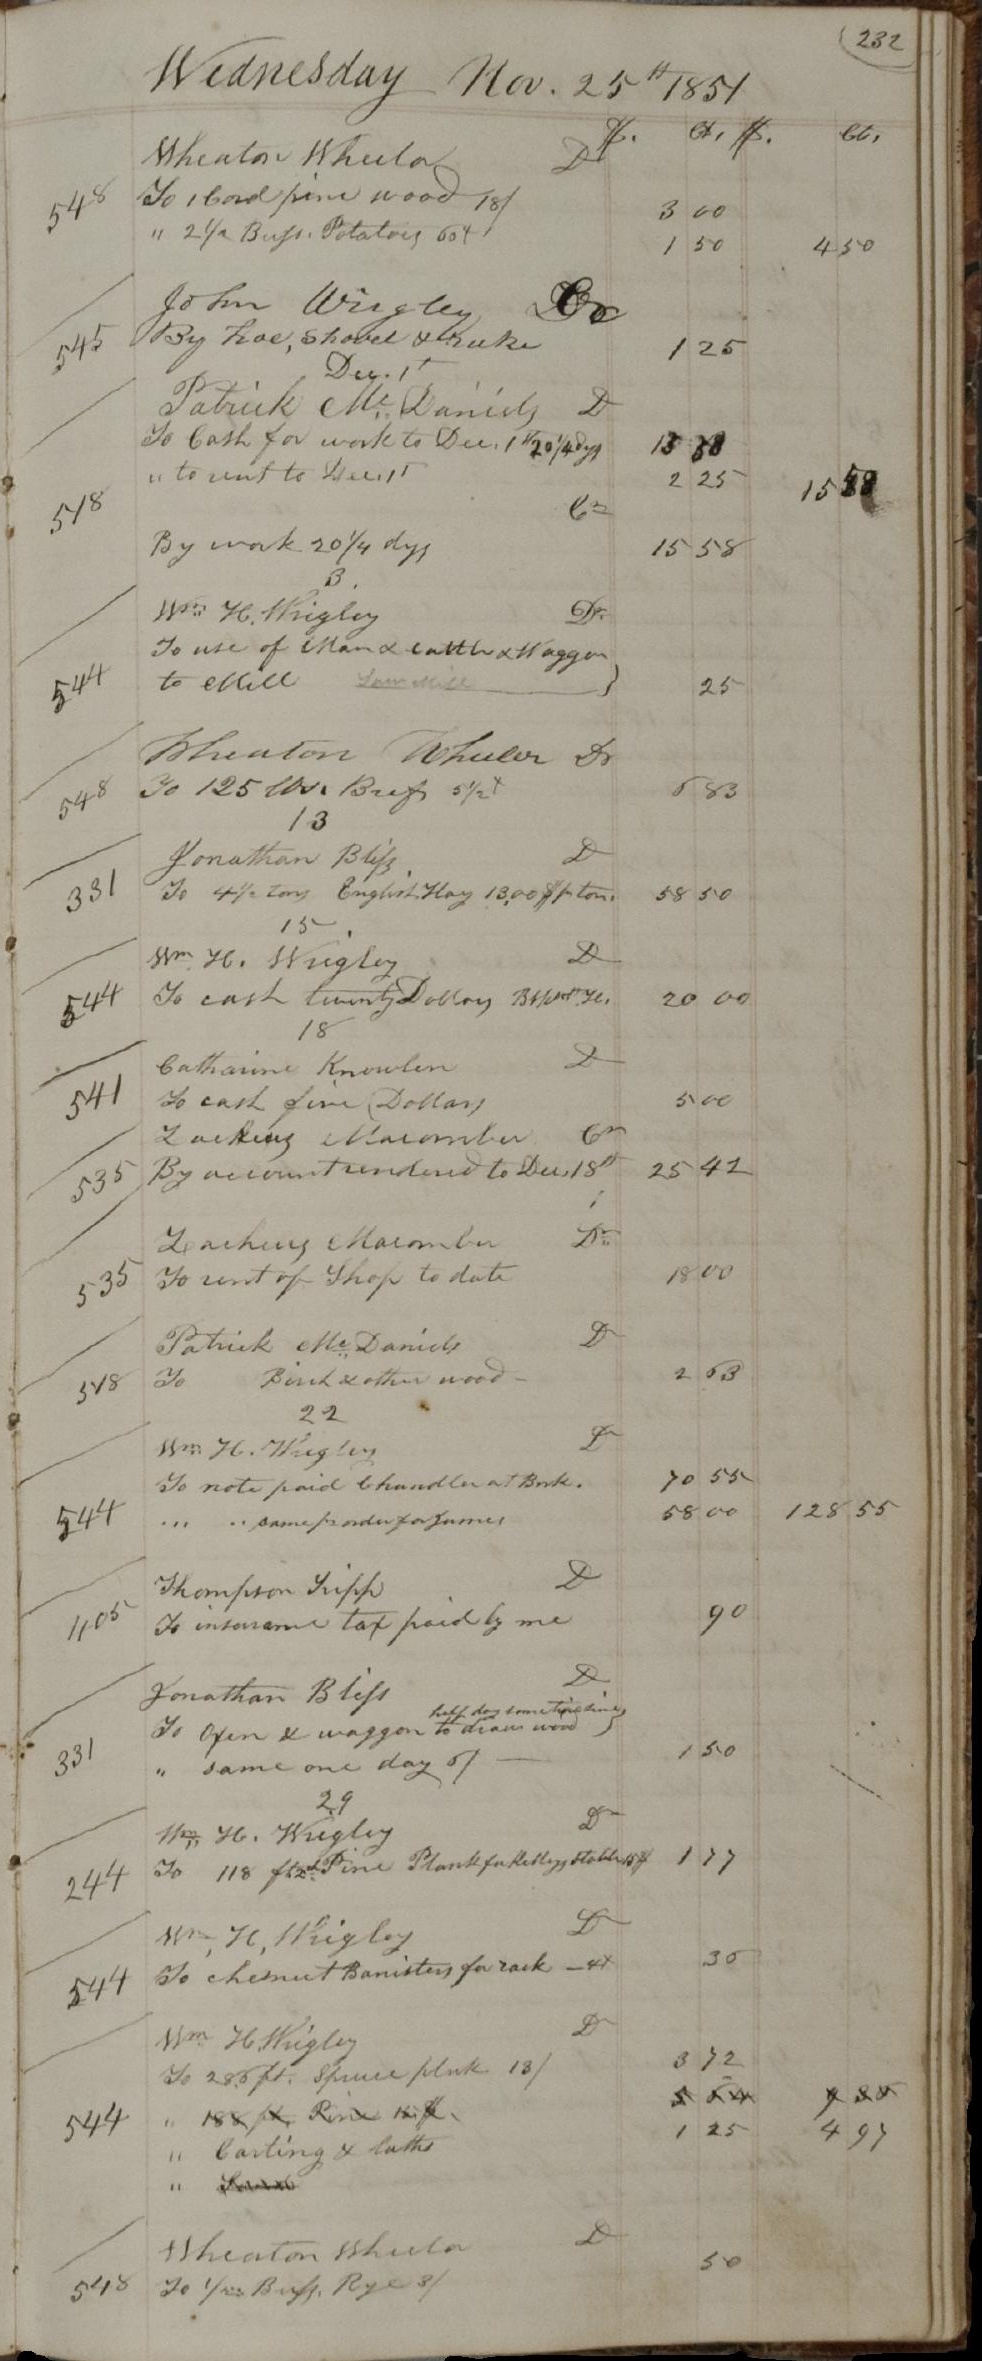 232
Wednesday Nov. 25th 1851
$. Ct. $. Ct.
Wheaton Wheelor Dr
548 To 1 Cord pine wood 18/ 3 00
" 2 1/2 Bush. Potatoes 60 1 50 4 50
John Wrigley Cr
545 By hoe, shovel & rake 1 25
Dec. 1st
Patrick Mc. Daniels D
To Cash for work to Dec. 1st 20 1/4 dys 13 33
" to rent to Dec. 1st 2 25 15 58
518 Cr
By work 20 1/4 dys 15 58
3.
Wm. H. Wrigley Dr.
To use of Man & cattle & Waggon
544 to Mill Saw Mill 25
Wheaton Wheeler Dr
548 To 125 lbs. Beef 5 1/2 6 83
13
Jonathan Bliss D
331 To 4 1/2 tons English Hay 13,00 $ pr ton. 58 50
15.
Wm. H. Wrigley D
544 To cash twenty Dollars 20 00
18
Catharine Knowlen D
541 To cash five Dollars 5 00
Zacheus Macomber Cr
535 By account rendered to Dec. 18th 25 42
Zacheus Macomber Dr
535 To rent of Shop to date 18 00
Patrick Mc. Daniels D
518 To Birch & other wood - 2 63
22
Wm. H. Wrigley D
To note paid Chandler at Bnk. 70 55
544 " " same pr order for James 58 00 128 55
Thompson Tripp D
1105 To insurance tax paid by me 90
Jonathan Bliss D
half day some time since
To Oxen & waggon to draw wood
331 " same one day 6/ 1 50
29
Wm. H. Wrigley D
244 To 118 ft 2d Pine Plank for Kelleys Stable 15 $ 1 77
Wm. H. Wrigley D
544 To chesnut Banisters for rack 36
Wm H. Wrigley D
To 286 ft. Spruce plnk 13/ 3 72
544 " 188 ft. Pine 18 $. 5 64 9 36
" Carting & laths 1 25 4 97
"
Wheaton Wheelor D
548 To 1/2 Bush. Rye 8/ 50